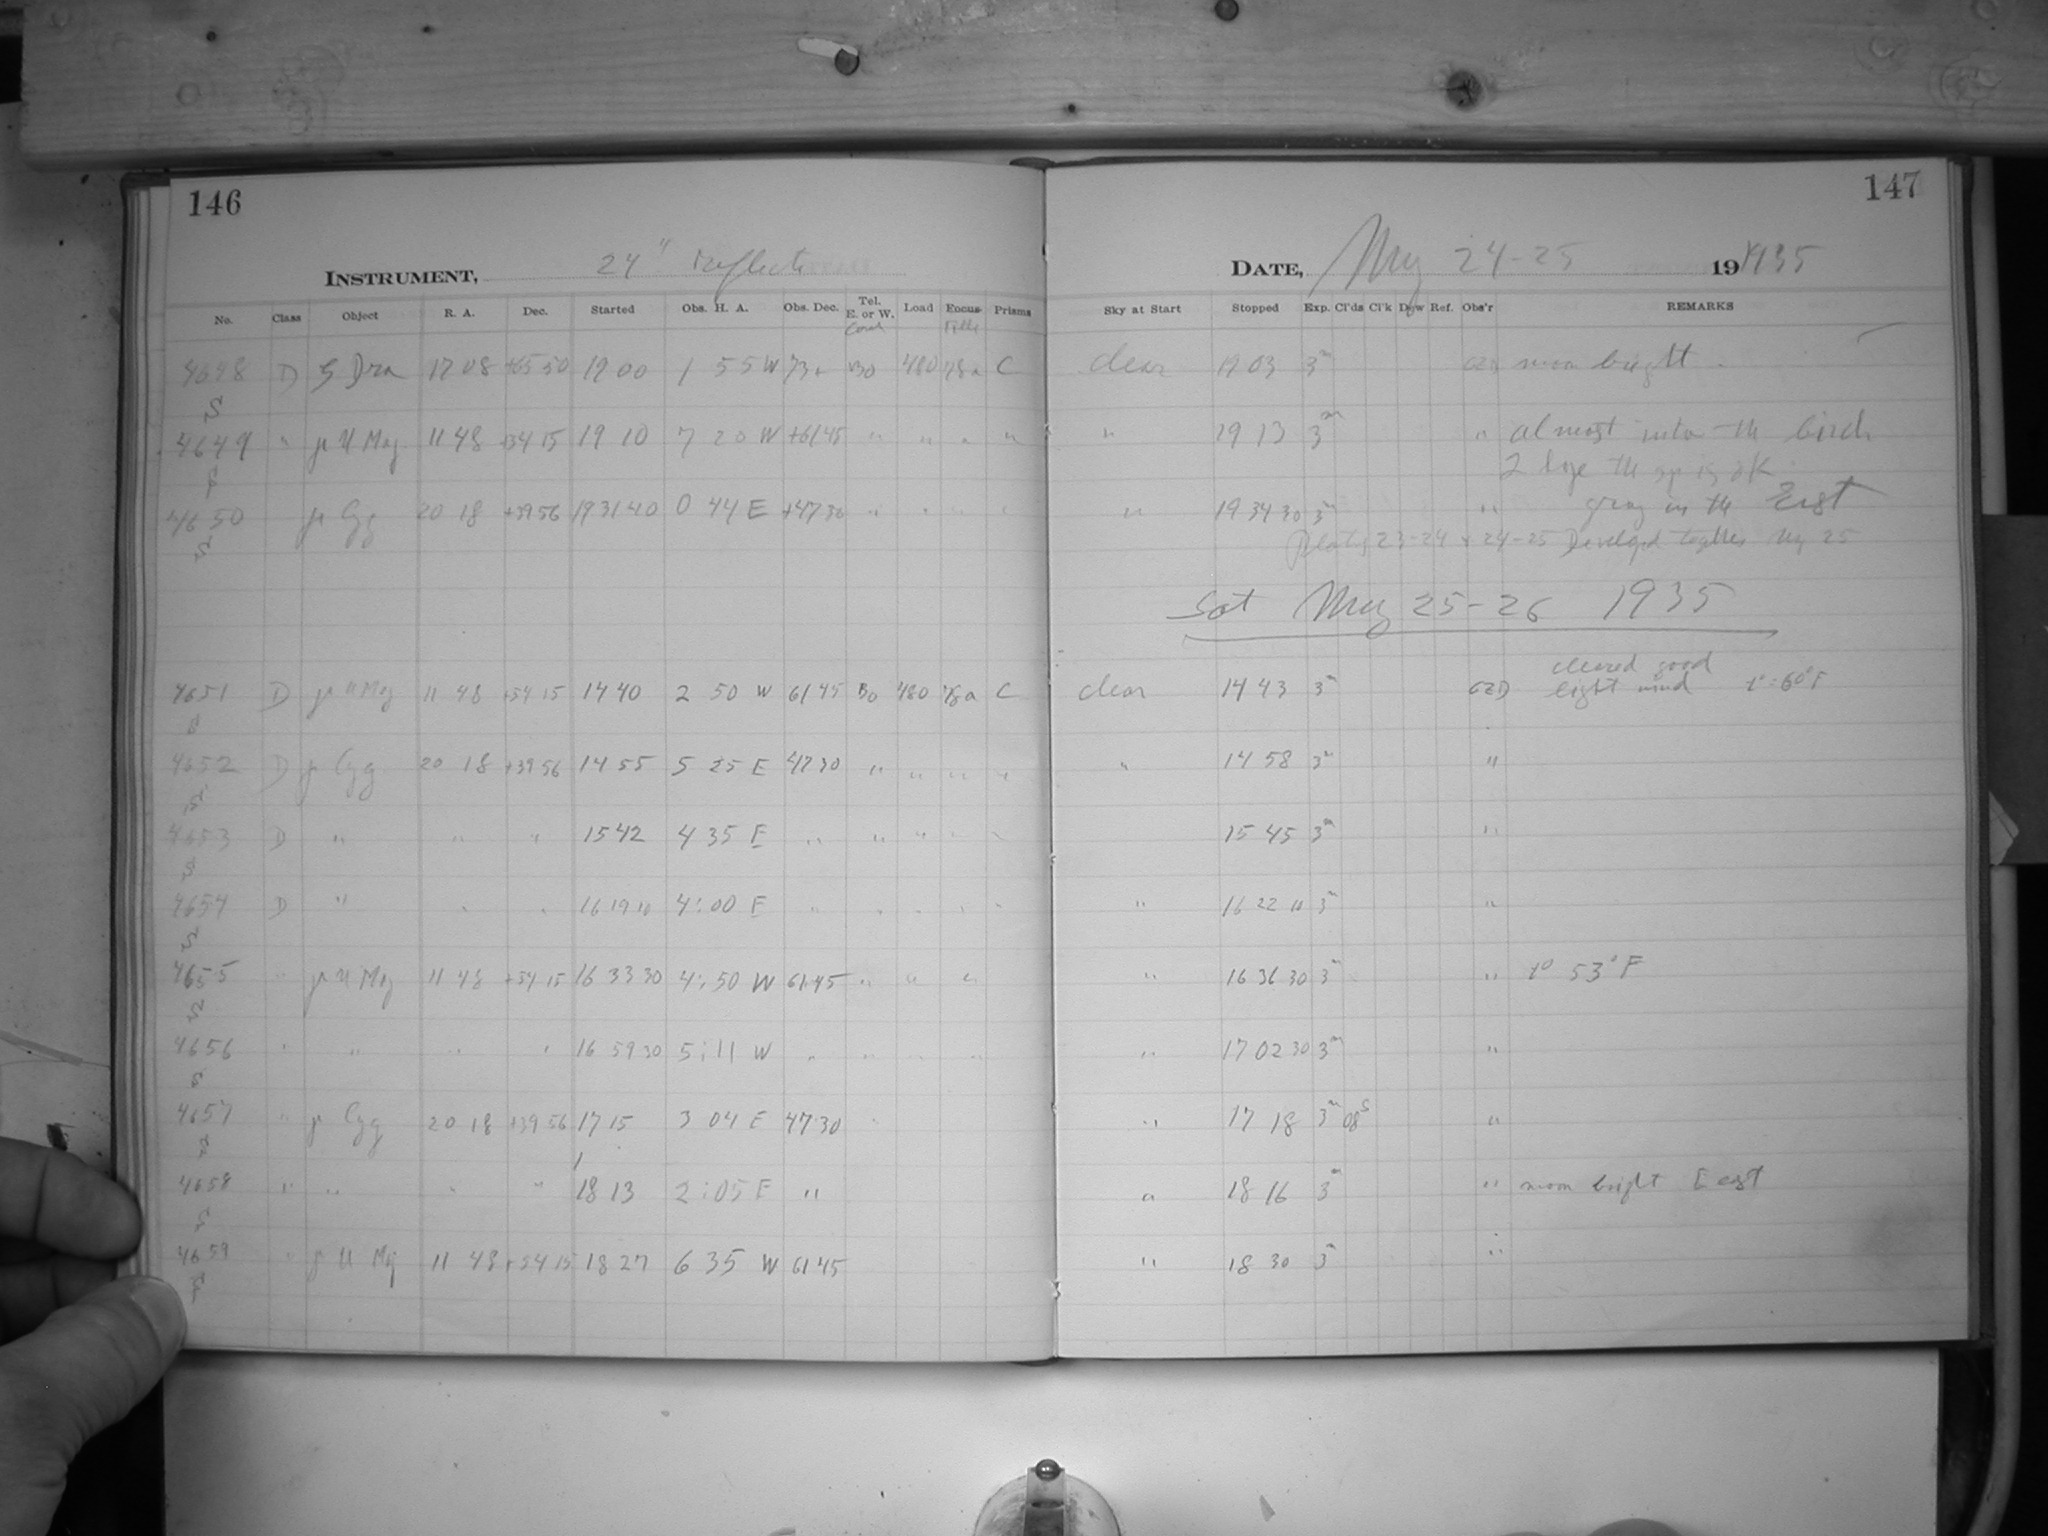 146
147
INSTRUMENT, 24" Reflector
DATE, May 24-25 1935
No. Class Object R. A. Dec. Started Obs. H. A. Obs. Dec. Tel. E. or W. Load Focus Prisms
Sky at Start Stopped Exp. Cl'ds Cl'k Dew Ref. Obs'r REMARKS
4648 D Dra 17 08 +65 50 19 00 1 55 W 480 C clear 19 03 3m moon bright
S
4649 " 11 48 +54 15 19 10 7 20 W +61 45 " " " " " 19 13 3m " almost into the birch
the is OK
4650 Cyg 20 18 +39 56 19 31 40 0 44 E +47 30 " " " " " 19 34 30 3m " gray in the East
S
Plates 23-24 + 24-25 Developed together May 25
Sat May 25-26 1935
cleared good
4651 D 11 48 +54 15 14 40 2 50 W 61 45 Bo 480 C clear 14 43 3m light wind t°=60°F
S
4652 D Cyg 20 18 +39 56 14 55 5 25 E 47 30 " " " " " 14 58 3m "
S
4653 D " " " 15 42 4 35 E " " " " " 15 45 3m "
S
4654 D " " " 16 19 10 4:00 E " " " " " " 16 22 10 3m "
S
4655 " 11 48 +54 15 16 33 30 4:50 W 61 45 " " " " 16 36 30 3m " t° 53°F
S
4656 " " " " 16 59 30 5:11 W " " " " " 17 02 30 3m "
S
4657 " Cyg 20 18 +39 56 17 15 3 04 E 47 30 " " 17 18 3m 08s "
S
4658 " " " " 18 13 2:05 E " " 18 16 3m " moon bright East
S
4659 " 11 48 +54 15 18 27 6 35 W 61 45 " 18 30 3m "
S